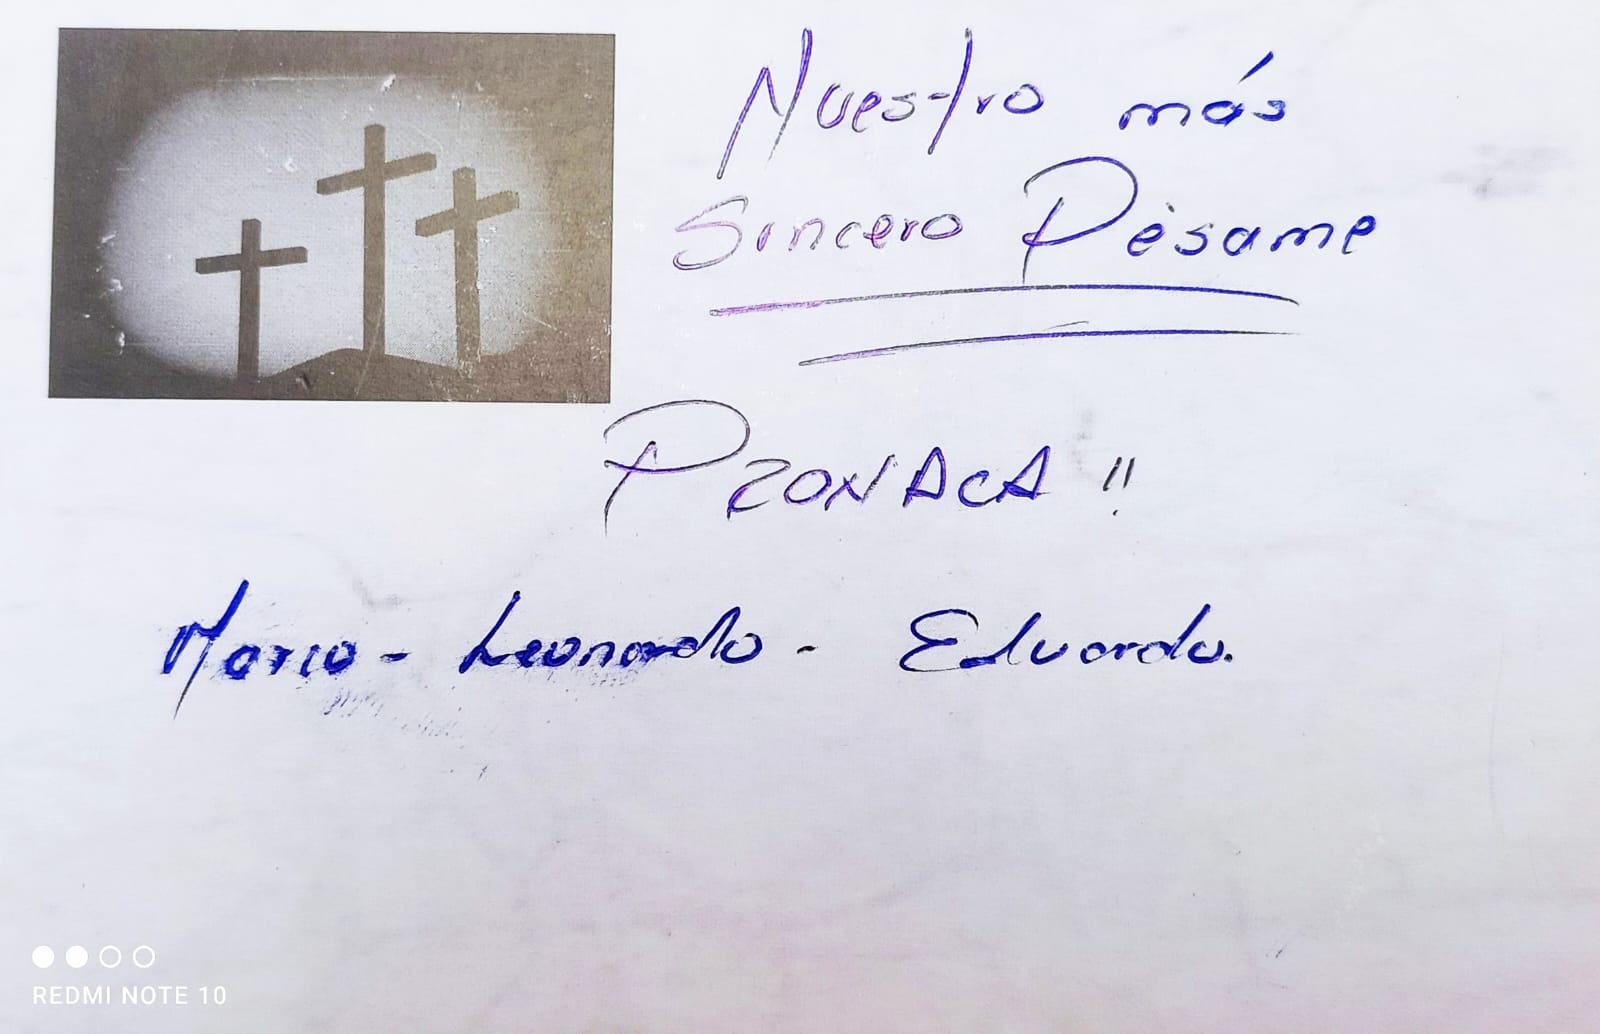 Nuestro más
Sincero Pésame
PRONACA !!
Mario - Leonardo - Eduardo.
REDMI NOTE 10